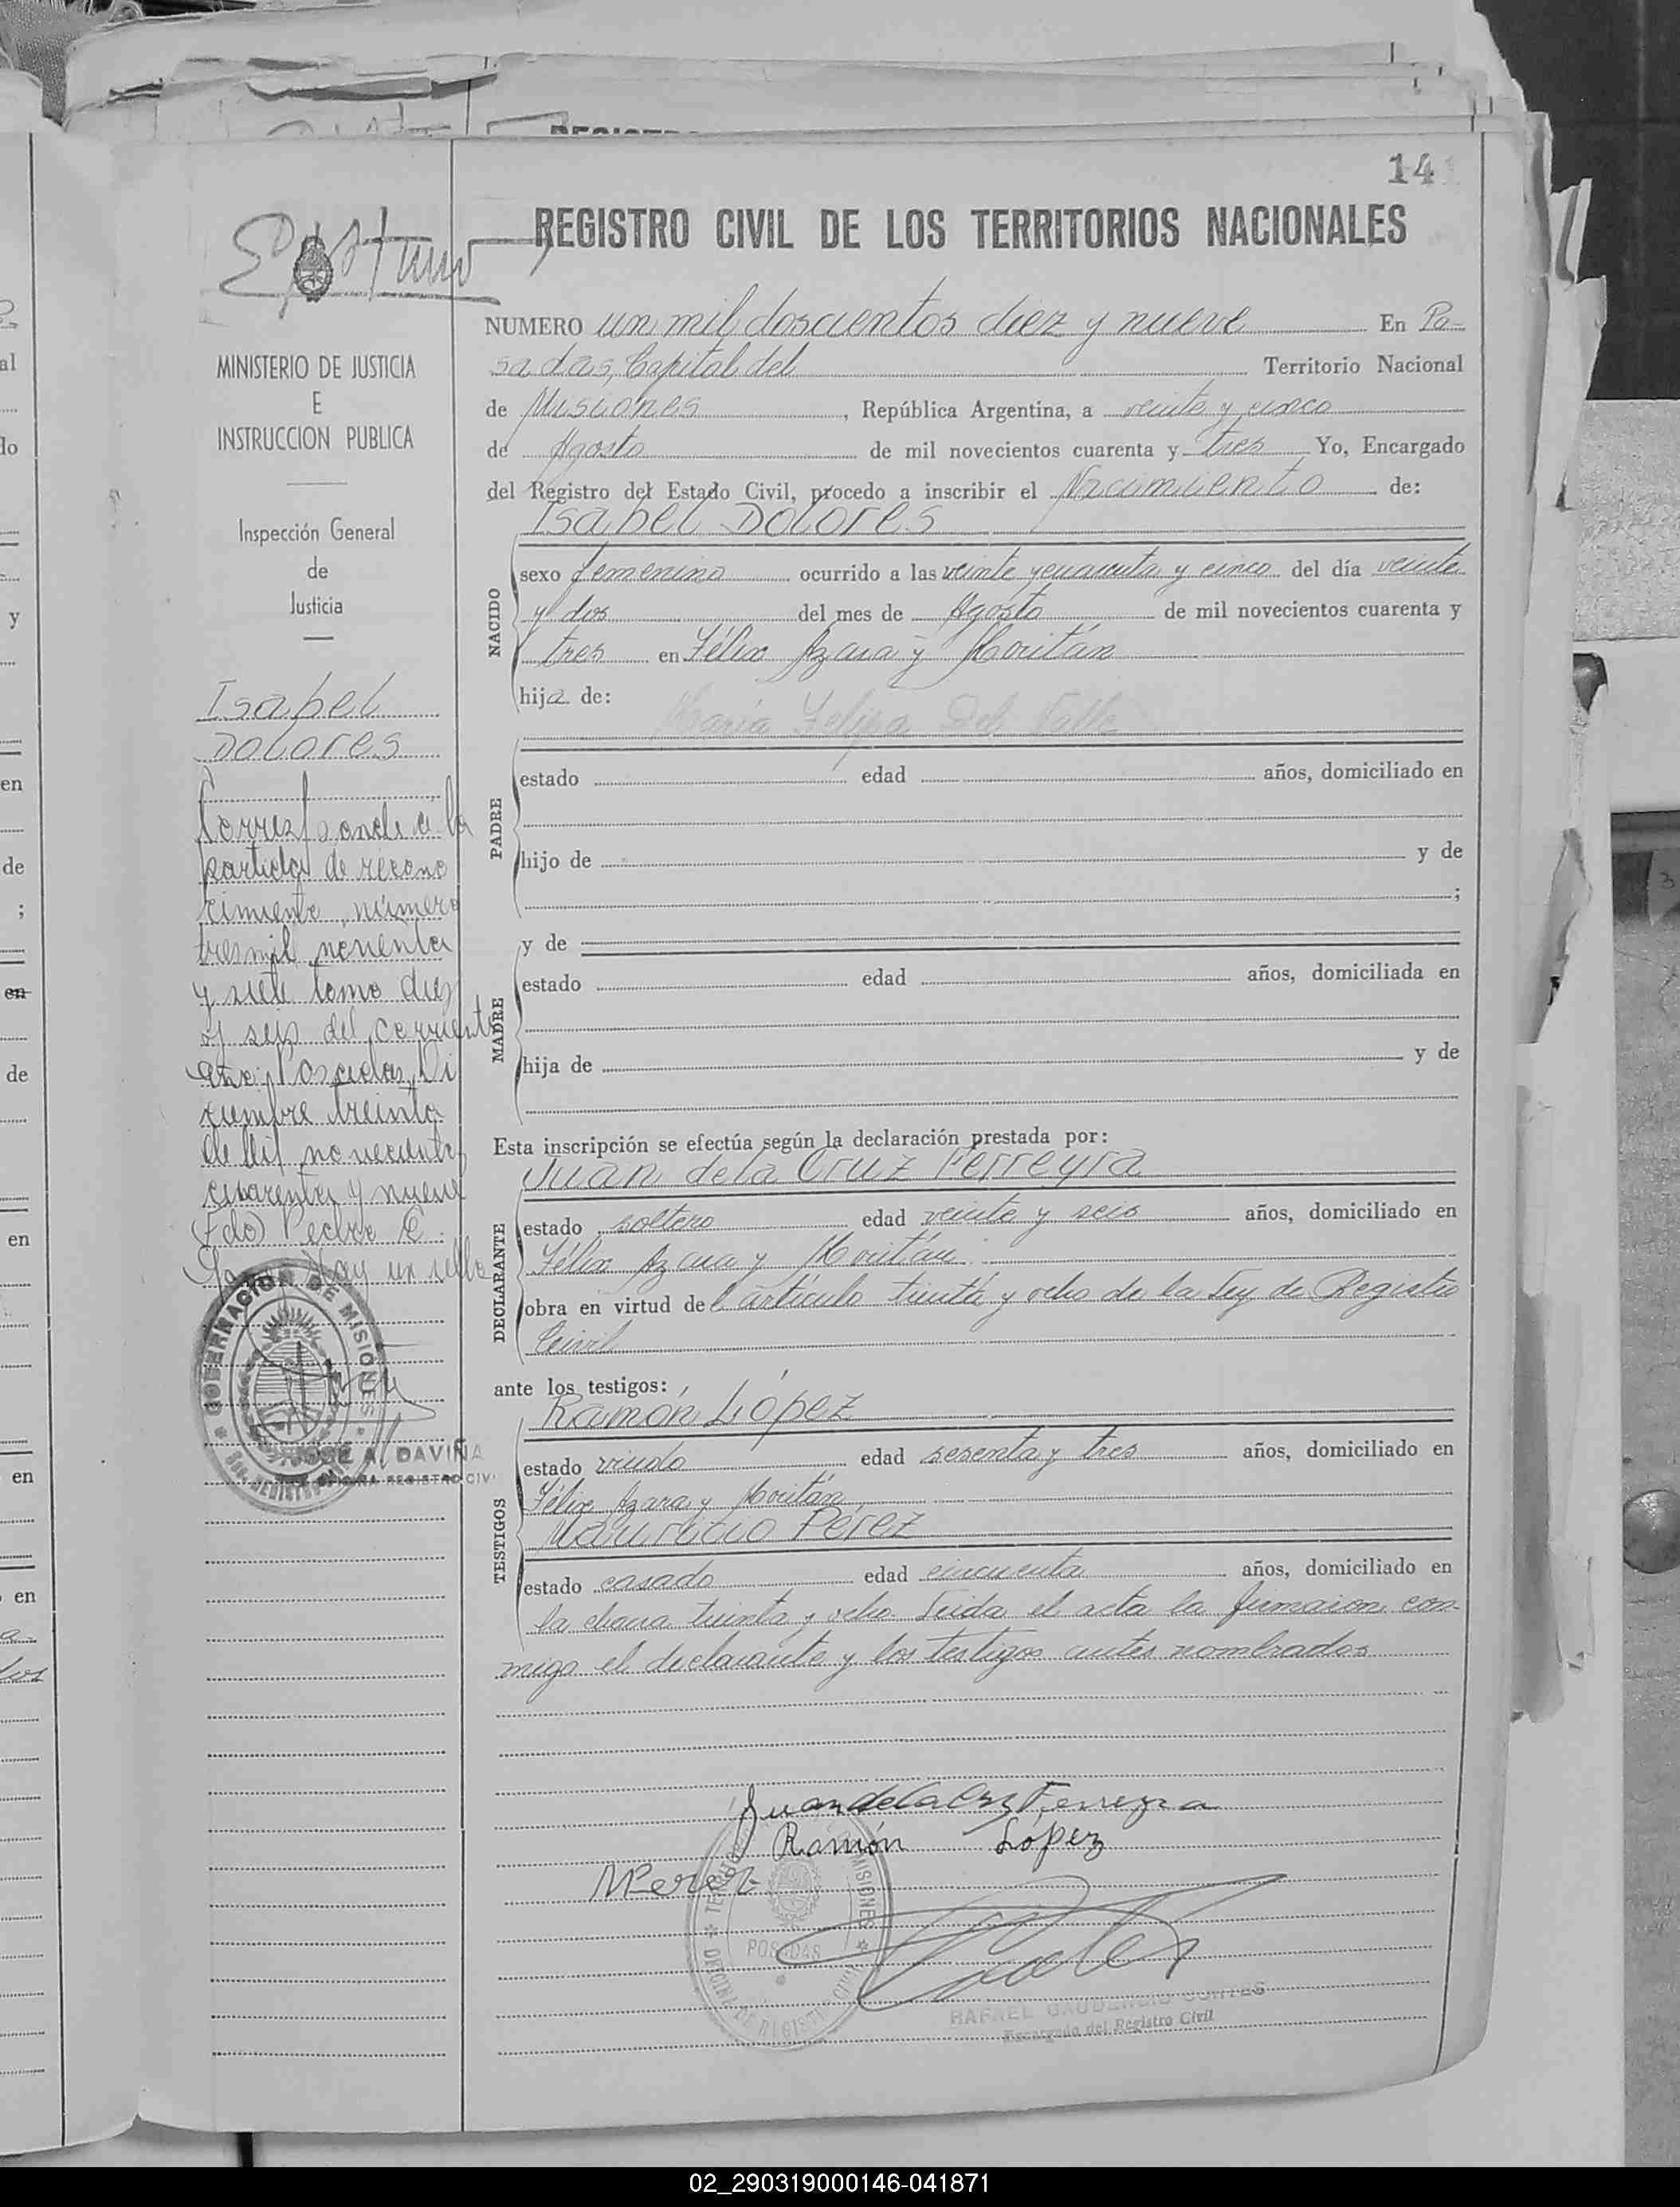 14
REGISTRO CIVIL DE LOS TERRITORIOS NACIONALES
MINISTERIO DE JUSTICIA
E
INSTRUCCION PUBLICA
Inspección General
de
Justicia
Isabel
Dolores
Corresponde a la
partida de recono
cimiento número
tres mil noventa
y siete tomo diez
y seis del corriente
año. Posadas, Di
ciembre treinta
de Mil novecientos
cuarenta y nueve
Fdo) Pedro E.
Hay un sello
GOBERNACION DE MISIONES
JOSE A. DAVIÑA
OFICINA REGISTRO CIVI
NUMERO un mil doscientos diez y nueve En Po-
sadas, Capital del Territorio Nacional
de Misiones, República Argentina, a veinte y cinco
de Agosto de mil novecientos cuarenta y tres Yo, Encargado
del Registro del Estado Civil, procedo a inscribir el Nacimiento de:
Isabel Dolores
NACIDO
sexo femenino ocurrido a las veinte y cuarenta y cinco del día veinte
y dos del mes de Agosto de mil novecientos cuarenta y
tres en Félix Azara y Moritán
hija de:
María Felipa Del Valle
PADRE
estado edad años, domiciliado en
hijo de y de
;
MADRE
y de
estado edad años, domiciliada en
hija de y de
Esta inscripción se efectúa según la declaración prestada por:
Juan de la Cruz Ferreyra
DECLARANTE
estado soltero edad veinte y seis años, domiciliado en
Félix Azara y Moritán
obra en virtud del artículo treinta y ocho de la Ley de Registro
Civil
ante los testigos:
Ramón López
TESTIGOS
estado viudo edad sesenta y tres años, domiciliado en
Félix Azara y Moritán
Mauricio Pérez
estado casado edad cincuenta años, domiciliado en
la chacra treinta y ocho. Leida el acta la firmaron con-
migo el declarante y los testigos antes nombrados
Juan de la Cruz Ferreyra
Ramón López
MPerez
MISIONES
POSADAS
OFICINA DE REGISTRO CIVIL
RAFAEL GAUDENCIO CORTES
Encargado del Registro Civil
02_290319000146-041871